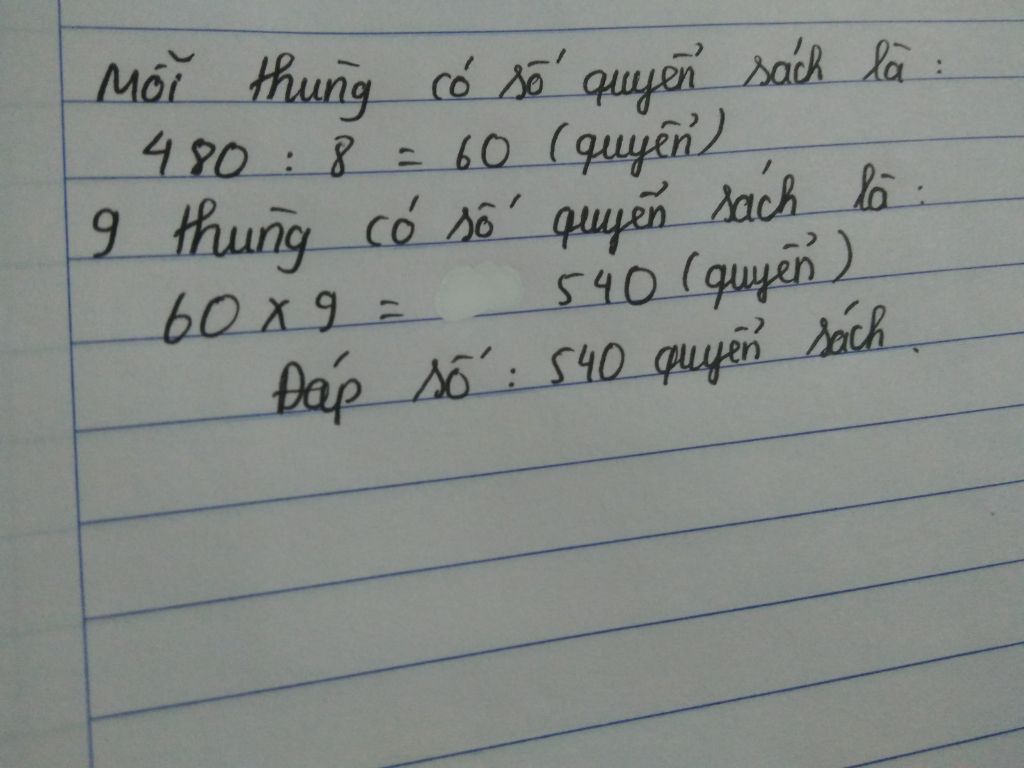 Mỗi thùng có số quyển sách là :
480 : 8 = 60 (quyển)
9 thùng có số quyển sách là :
60 x 9 = 540 (quyển)
Đáp số : 540 quyển sách.